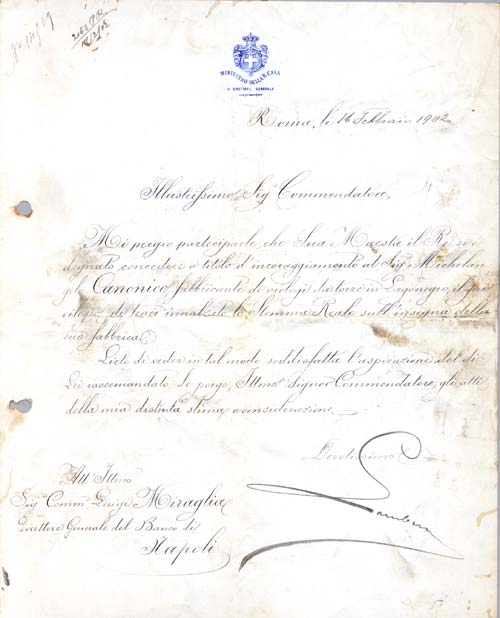 MINISTERO DELLA R. CASA
IL DIRETTORE GENERALE
Roma, li 16 Febbraio 1902
Illustrissimo Sig.r Commendatore,
Mi pregio partecipare, che Sua Maestà il Re si è
degnato concedere a titolo d'incoraggiamento al Sig.r Michelan
gelo Canonico fabbricante di orologi da torre in Lagonegro, il pri
vilegio di poter innalzare lo Stemma Reale sull'insegna della
sua fabbrica.
Lieto di veder in tal modo soddisfatta l'aspirazione del di
Lei raccomandato, Le porgo, Ill.mo Signor Commendatore, gli atti
della mia distinta stima e considerazione.
Devotissimo
All' Ill.mo
Sig. Comm. Luigi Miraglia
Direttore Generale del Banco di
Napoli